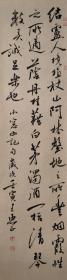 结庐人境植杖山阿林壑地之所丰烟霞性
之所适荫丹桂藉白茅浊酒一杯清琴
数弄诚足乐也 小窗幽记句 岁次壬寅 王